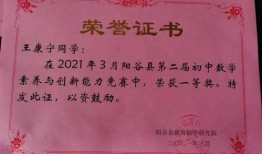 荣誉证书
王康宁同学：
在2021年3月阳谷县第二届初中数学
素养与创新能力竞赛中，荣获一等奖。特
发此证，以资鼓励。
阳谷县教育科学研究院
二〇二一年三月